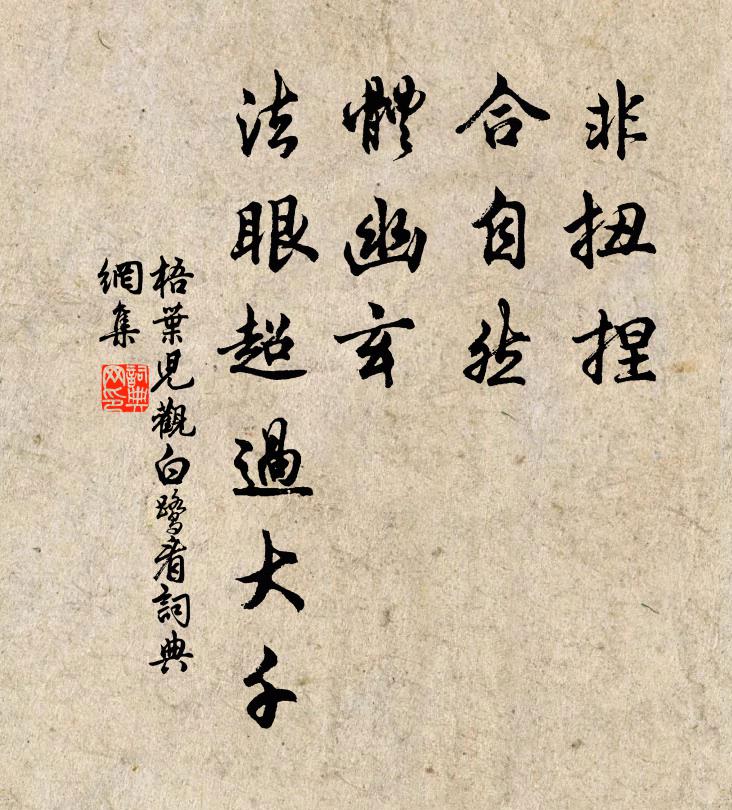 非扭捏
合自然
體幽玄
法眼超過大千
梧葉児觀白鹭看詞典
網集
詞典
网印